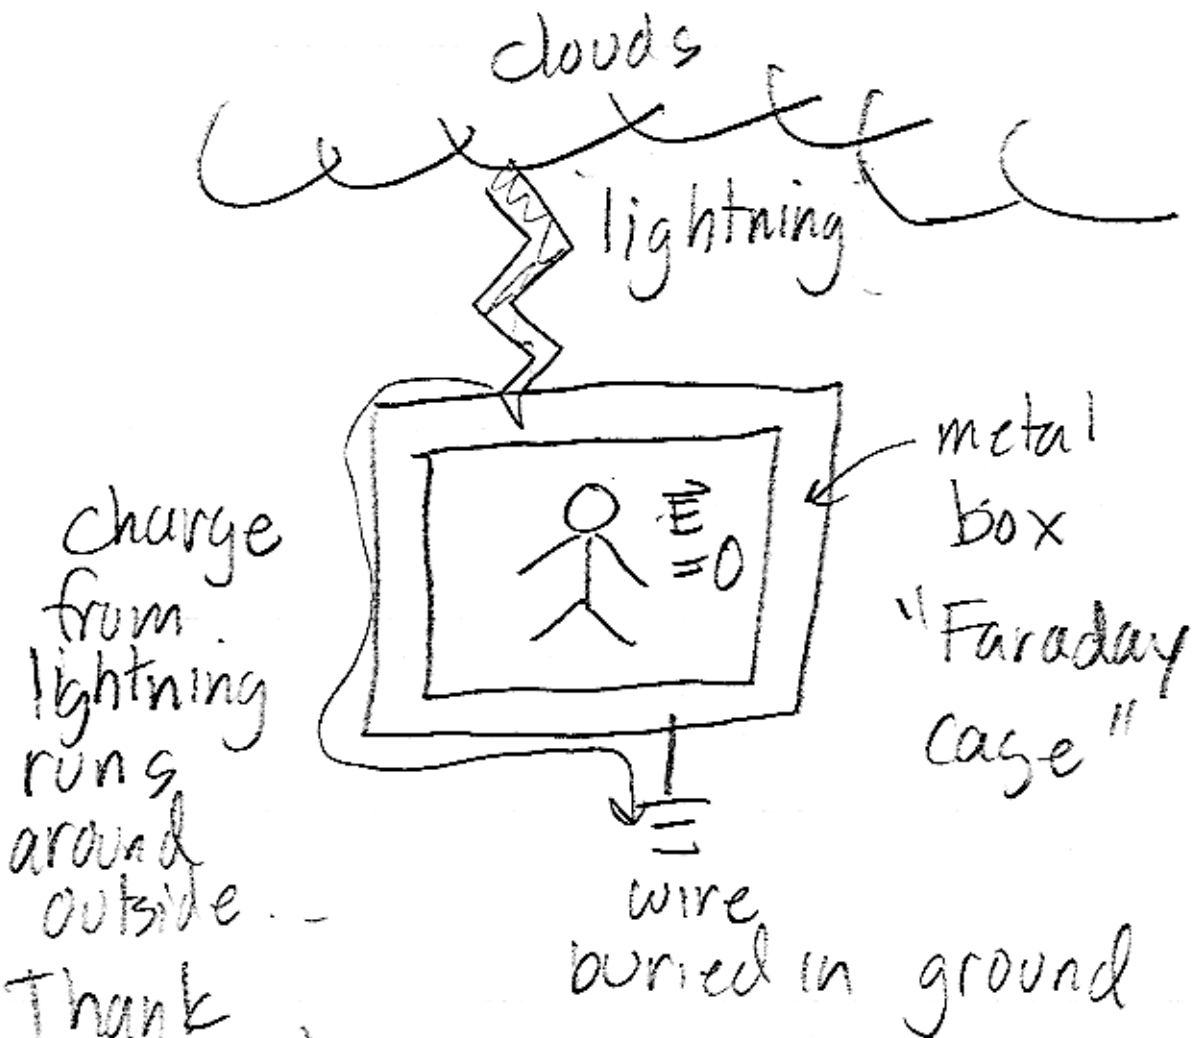 clouds
lightning
metal
box
"Faraday
cage"
E
=0
charge
from
lightning
runs
around
outside...
Thank
wire
buried in ground